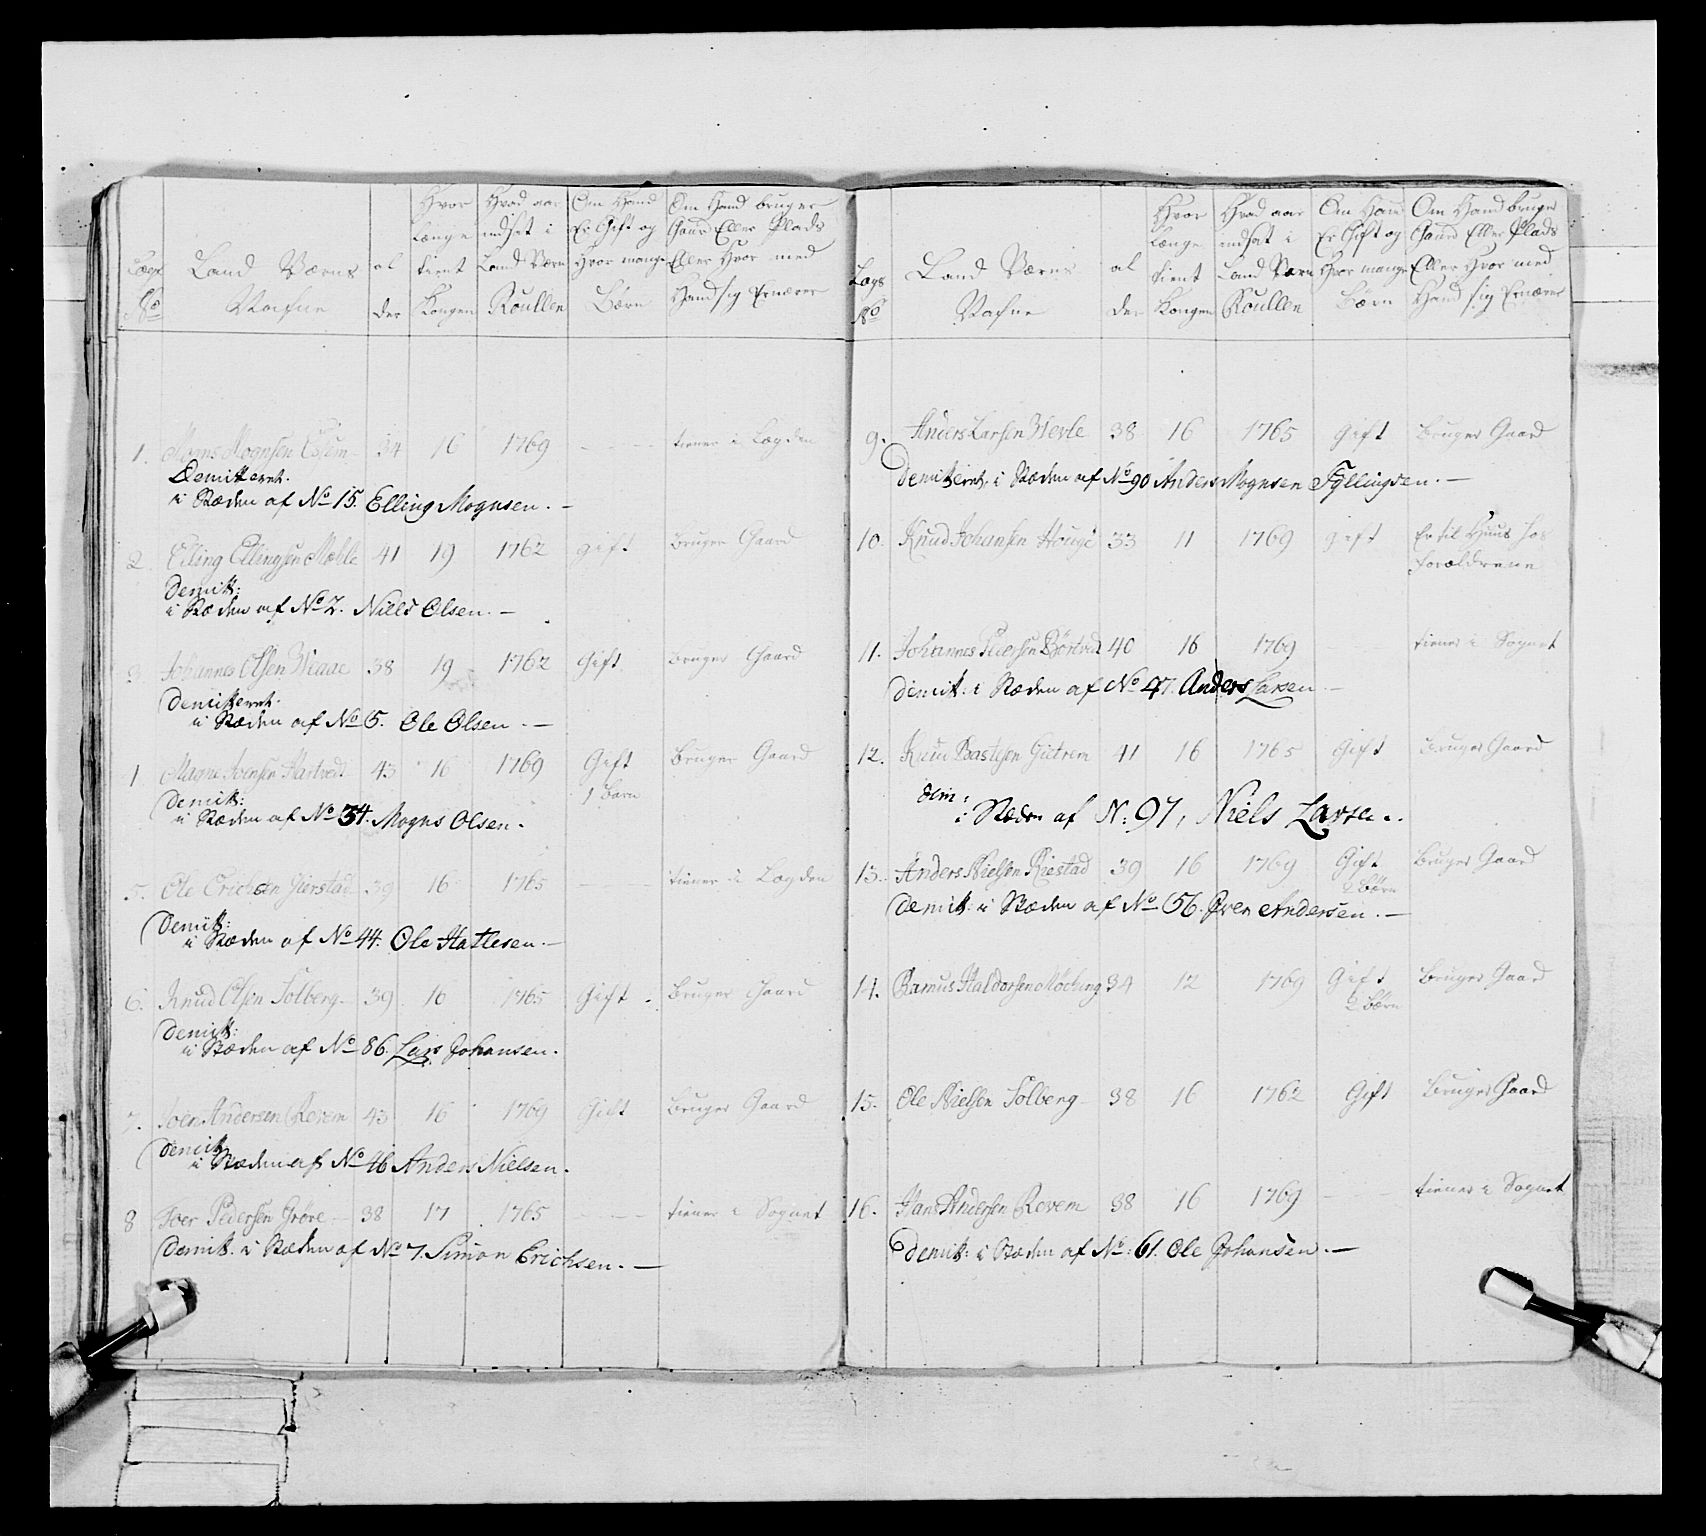 Lægs No | Land Værns Nafne | al der | Hvor længe tient Kongen | Hvad aar indsat i Land Værn Roullen | Om Hand Er Gift og Hvor mange Børn | Om Hand bruger Gaard Eller Plads Eller Hvor med Hand sig Ernærer
1. Mons Mognsen 34 16 1769 — tiener i Lægden
Demitteret.
i Stæden af No 15. Elling Mognsen. —
2. Elling Ellingsen Mæhle 41 19 1762 gift bruger Gaard
Demitt:
i Stæden af No 2. Niels Olsen. —
3. Johannes Olsen 38 19 1762 Gift bruger Gaard
Demitteret.
i Stæden af No 5. Ole Olsen. —
4 Magne Ivensen Hartvedt 43 16 1769 Gift bruger Gaard
1 barn
Demitt:
i Stæden af No 34. Mogns Olsen.
5. Ole Erichsen Gierstad 39 16 1765 — tiener i Lægden
Demitt:
i Stæden af No 44. Ole Hatlesen. —
6. Knud Olsen Solberg 39 16 1765 Gift. bruger Gaard
Demitt:
i Stæden af No 86. Lars Johansen.
7. Iver Andersen Revem 43 16 1769 Gift bruger Gaard
Demitt
i Stæden af No 46 Anders Nielsen.
8 Iver Pedersen Grøve 38 17 1765 — tiener i Sognet
Demitt. i Stæden af No 7. Simon Erichsen. —
Lægs No | Land Værns Nafne | al der | Hvor længe tient Kongen | Hvad aar indsat i Land Værn Roullen | Om Hand Er Gift og Hvor mange Børn | Om Hand bruger Gaard Eller Plads Eller Hvor med Hand sig Ernærer
9. Anders Larsen Herle 38 16 1765 Gift bruger Gaard
Demitteret. i Stæden af No 90 Anders Mognsen Fyllingsen. —
10. Knud Johansen Houge 33 11 1769 gift Er til Huus hos
forældrene
11. Johannes Pedersen Børtved 40 16 1769 tiener i Sognet
Demitt: i Stæden af No 47. Anders Larsen —
12. Knud Bastesen Gietrem 41 16 1765 Gift bruger Gaard
dem:
i Stæden af N: 97, Niels Larsen.
13. Anders Nielsen Riestad 39 16 1769 Gift bruger Gaard
2 børn
Demitt: i Stæden af No 56. Iver Andersen. —
14. Ramus Haldorsen Møching 34 12 1769 Gift bruger Gaard
2 børn
15. Ole Nielsen Solberg 38 16 1762 Gift bruger Gaard
16. Hans Andersen Revem 38 16 1769 — tiener i Sognet
Demitt: i Stæden af No: 61. Ole Johansen. —